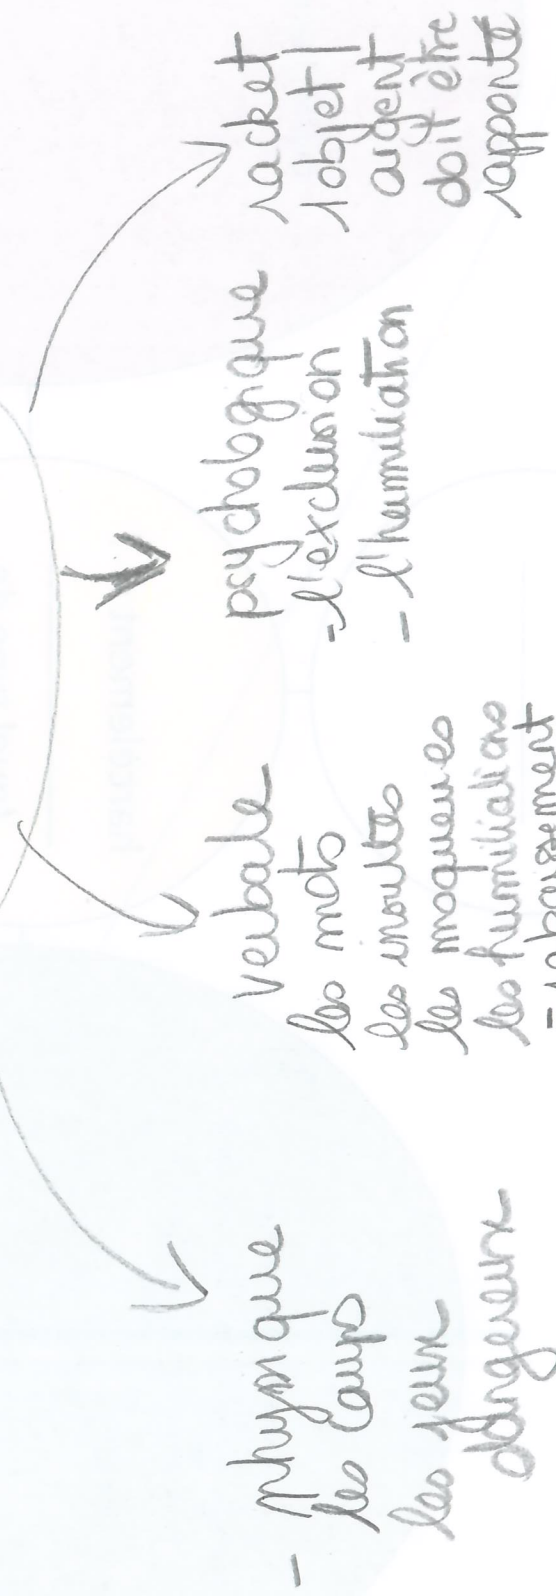 - physique
les coups
les jeux
dangereux
verbale
les mots
les insultes
les moqueries
les humiliations
- rabaissement
psychologique
- l'exclusion
- l'humiliation
racket
1 objet /
argent
doit être
rapporté
harcèlement